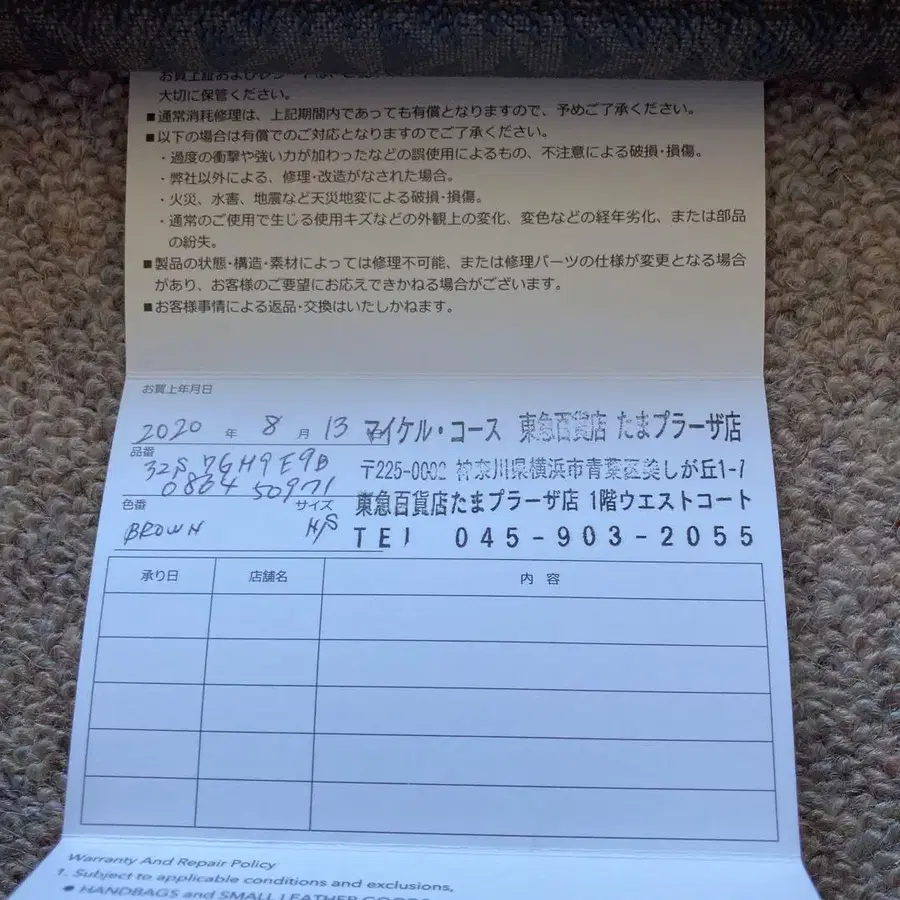 大切に保管ください。
■通常消耗修理は、上記期間内であっても有償となりますので、予めご了承ください。
■以下の場合は有償でのご対応となりますのでご了承ください。
・過度の衝撃や強い力が加わったなどの誤使用によるもの、不注意による破損・損傷。
・弊社以外による、修理・改造がなされた場合。
・火災、水害、地震など天災地変による破損・損傷。
・通常のご使用で生じる使用キズなどの外観上の変化、変色などの経年劣化、または部品
の紛失。
■製品の状態・構造・素材によっては修理不可能、または修理パーツの仕様が変更となる場合
があり、お客様のご要望にお応えできかねる場合がございます。
■お客様事情による返品・交換はいたしかねます。
お買上年月日
2020 年 8 月 13 日
マイケル・コース 東急百貨店 たまプラーザ店
品番
32S7GH9E9B
〒225-0002 神奈川県横浜市青葉区美しが丘1-7
0864 50971
東急百貨店たまプラーザ店 1階ウエストコート
色番 サイズ
BROWN N/S
TEL 045-903-2055
承り日 店舗名 内容
Warranty And Repair Policy
1. Subject to applicable conditions and exclusions,
● HANDBAGS and SMALL LEATHER GOODS